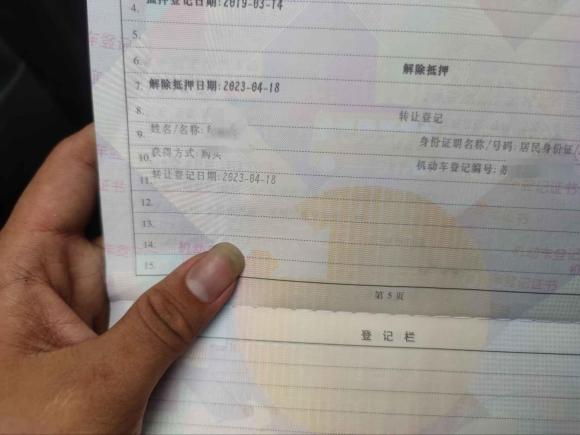 4. 抵押登记日期:2019-03-14
5.
6. 解除抵押
7. 解除抵押日期:2023-04-18
8. 转让登记
9. 姓名/名称: 身份证明名称/号码: 居民身份证/
10. 获得方式: 购买 机动车登记编号:
11. 转让登记日期:2023-04-18
12.
13.
14.
15.
第 5 页
登 记 栏